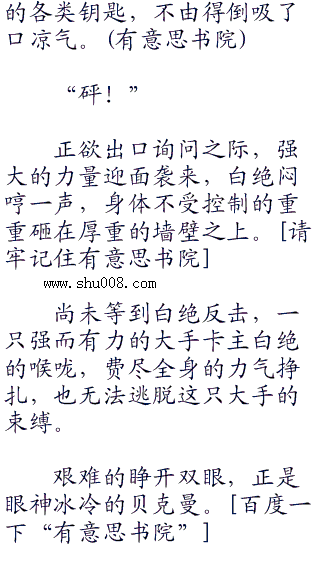 的各类钥匙，不由得倒吸了
口凉气。(有意思书院)
“砰！”
正欲出口询问之际，强
大的力量迎面袭来，白绝闷
哼一声，身体不受控制的重
重砸在厚重的墙壁之上。[请
牢记住有意思书院]
www.shu008.com
尚未等到白绝反击，一
只强而有力的大手卡主白绝
的喉咙，费尽全身的力气挣
扎，也无法逃脱这只大手的
束缚。
艰难的睁开双眼，正是
眼神冰冷的贝克曼。[百度一
下“有意思书院”]